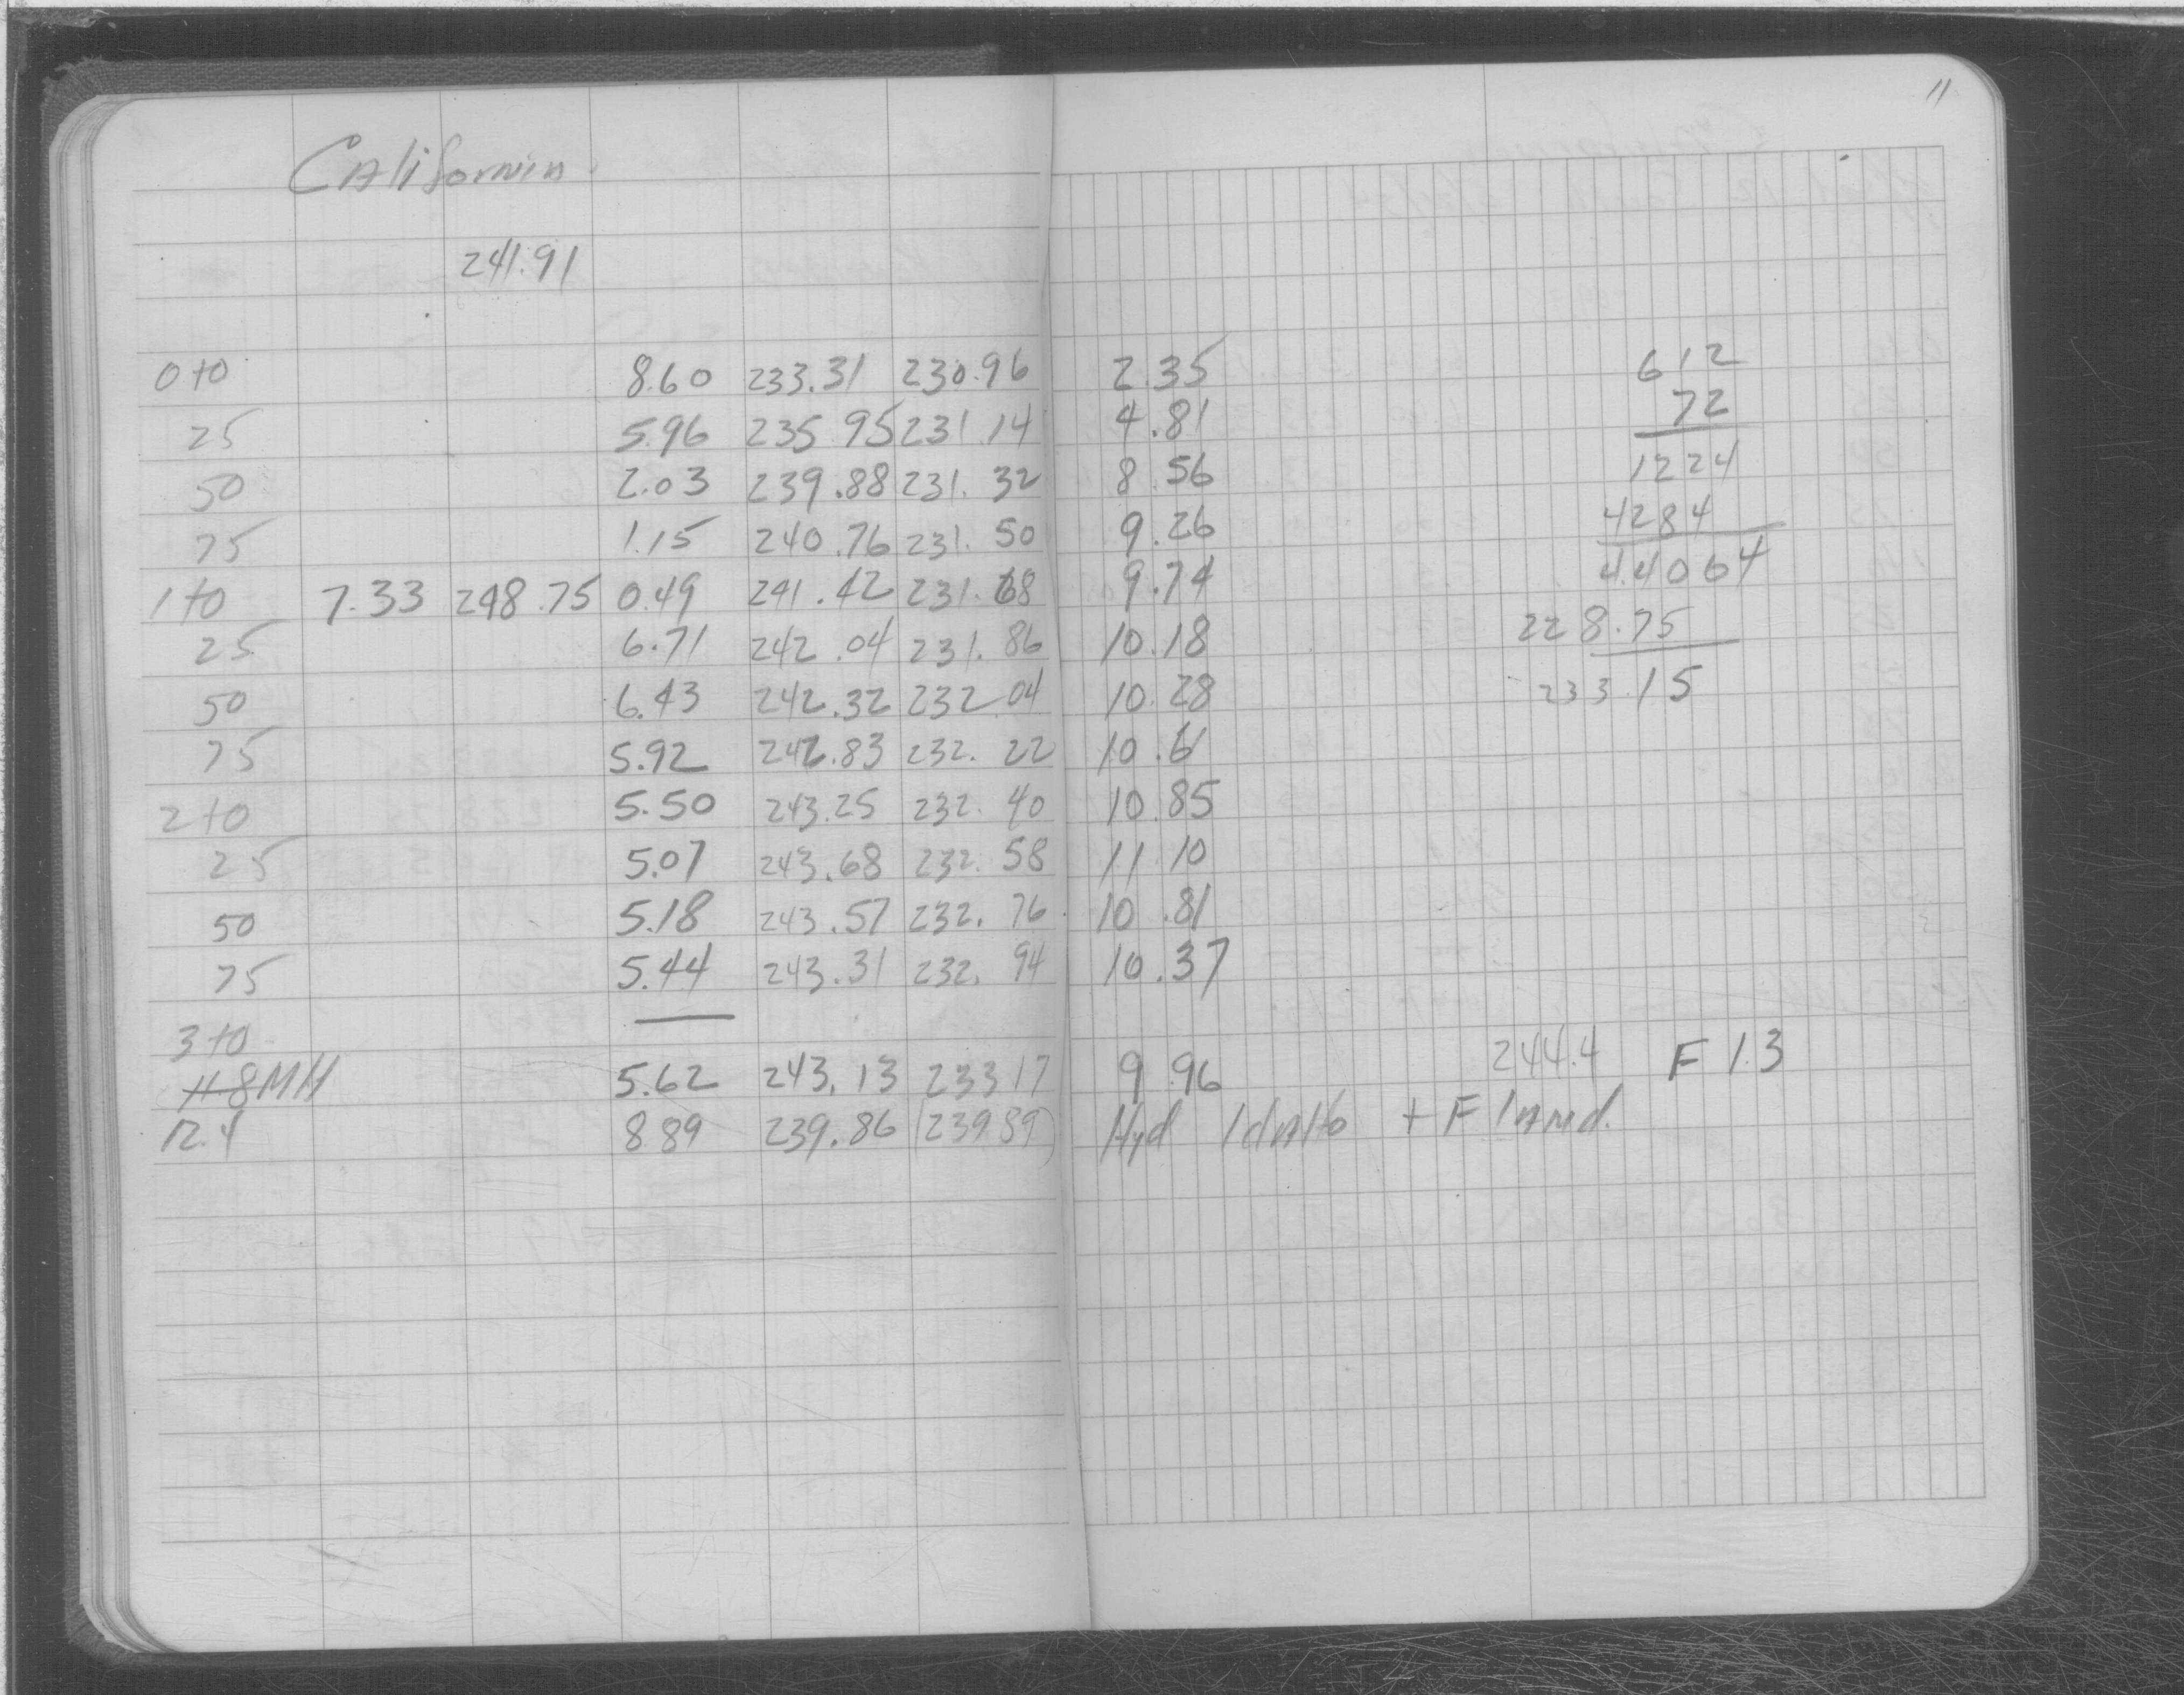 11
California
241.91
0+0 8.60 233.31 230.96 2.35
25 5.96 235.95 231.14 4.81
50 2.03 239.88 231.32 8.56
75 1.15 240.76 231.50 9.26
1+0 7.33 248.75 0.49 241.42 231.68 9.74
25 6.71 242.04 231.86 10.18
50 6.43 242.32 232.04 10.28
75 5.92 242.83 232.22 10.61
2+0 5.50 243.25 232.40 10.85
25 5.07 243.68 232.58 11.10
50 5.18 243.57 232.76 10.81
75 5.44 243.31 232.94 10.37
3+0
11.8 MH 5.62 243.13 233 17 9.96 244.4 F 1.3
12.4 8 89 239.86 (239 89) Hyd Idaho + F
612
72
1224
4284
4.4064
228.75
233.15